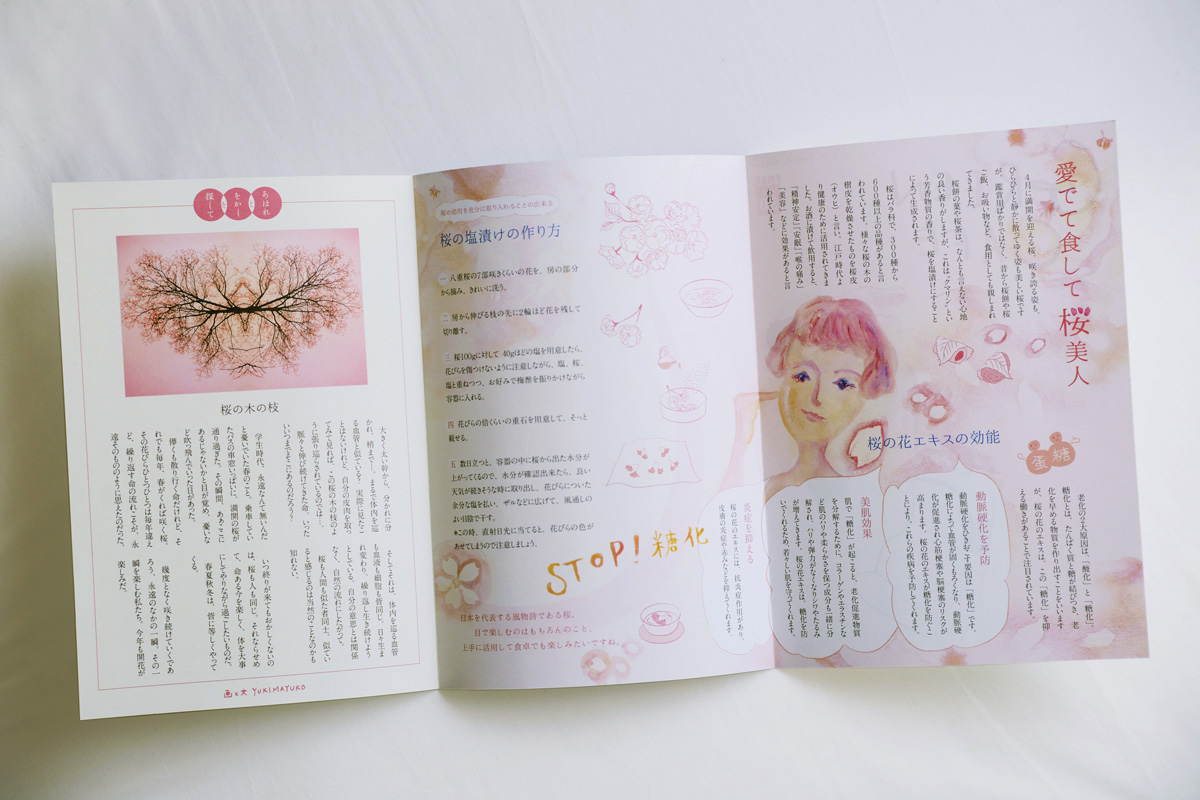 愛でて食して桜美人
4月に満開を迎える桜。咲き誇る姿も、
ひらひらと静かに散ってゆく姿も美しい桜です
が、鑑賞用ばかりではなく、昔から桜餅や桜
ご飯、お吸い物など、食用としても親しまれ
てきました。
桜餅の葉や桜茶は、なんとも言えない心地
の良い香りがしますが、これは「クマリン」とい
う芳香物質の香りで、桜を塩漬けにすること
によって生成されます。
桜はバラ科で、300種から
600種以上の品種があると言
われています。様々な桜の木の
樹皮を乾燥させたものを桜皮
（オウヒ）と言い、江戸時代よ
り健康のために活用されてきま
した。お酒に漬けて飲用すると、
「精神安定」「安眠」「喉の痛み」
「美容」などに効果があると言
われています。
桜の花エキスの効能
蛋糖
老化の2大原因は、「酸化」と「糖化」。
糖化とは、たんぱく質と糖が結びつき、老
化を早める物質を作り出すことをいいます
が、桜の花のエキスは、この「糖化」を抑
える働きがあることで注目されています。
動脈硬化を予防
動脈硬化をひきおこす要因は「糖化」です。
糖化によって血管が固くもろくなり、動脈硬
化が促進され心筋梗塞や脳梗塞のリスクが
高まります。桜の花のエキスが糖化を防ぐこ
とにより、これらの疾病を予防します。
美肌効果
肌で「糖化」が起こると、老化促進物質
を分解するために、コラーゲンやエラスチンな
ど肌のハリや柔らかさを保つ成分も一緒に分
解され、ハリや弾力がなくなりシワやたるみ
が増えてきます。桜の花のエキスは、糖化を防
いでくれるため、若々しい肌を守ってくれます。
炎症を抑える
桜の花のエキスには、抗炎症作用があり、
皮膚の炎症や赤みなどを抑えてくれます。
桜の効用を充分に取り入れることの出来る
桜の塩漬けの作り方
一 八重桜の7部咲きくらいの花を、房の部分
から摘み、きれいに洗う。
二 房から伸びる枝の先に2輪ほど花を残して
切り離す。
三 桜100gに対して 40gほどの塩を用意したら、
花びらを傷つけないように注意しながら、塩、桜、
塩と重ねつつ、お好みで梅酢を振りかけながら
容器に入れる。
四 花びらの倍くらいの重石を用意して、そっと
載せる。
五 数日立つと、容器の中に桜から出た水分が
上がってくるので、水分が確認出来たら、良い
天気が続きそうな時に取り出し、花びらについた
余分な塩を払い、ザルなどに広げて、風通しの
よい日陰で干す。
*この時、直射日光に当てると、花びらの色が
あせてしまうので注意しましょう。
STOP! 糖化
日本を代表する風物詩である桜。
目で楽しむのはもちろんのこと、
上手に活用して食卓でも楽しみたいですね。
あはれ
をかし
探して
桜の木の枝
大きく太い幹から、分かれに分
かれ、梢まで―。まるで体内を巡
る血管と似ている？ 実際に見たこ
とはないけれど、自分の皮肉を取っ
てみて見れば、この桜の木の枝のよ
うに張り巡らされているのでは―。
脈々と伸び続けてきた命、いった
いいつまでそこにあるのだろう？
学生時代、永遠なんて無いんだ
と憂いでいた春のこと。乗車してい
たバスの車窓いっぱいに、満開の桜が
通り過ぎた。その瞬間、あぁここに
あるじゃないかと目が覚め、憂いな
ど吹っ飛んでいった日があった。
儚くも散り行く命だけれど、そ
れでも毎年、春がくれば咲く桜。
その花びらひとつひとつは毎年違え
ど、繰り返す命の流れこそが、永
遠そのもののように思えたのだった。
そしてそれは、体内を巡る血管
も血液も細胞も骨同じ、日々生ま
れ変わり、繰り返し生き続けよう
としている。自分の意思とは関係
なく、自然の流れにしたがって。
桜も人間も似た者同士。似てい
ると感じるのは当然のことなのかも
知れない。
いつ終りが来てもおかしくないの
は、桜も人も同じ。それならせめ
て、命ある今を楽しく、体を大事
にしてやりながら過ごしたいものだ。
春夏秋冬は、皆に等しくやって
くる。
幾度となく咲き続けていくであ
ろう、永遠のなかの一瞬、その一
瞬を楽しむ私たち。今年も開花が
楽しみだ。
画と文 YUKIMAYUKO